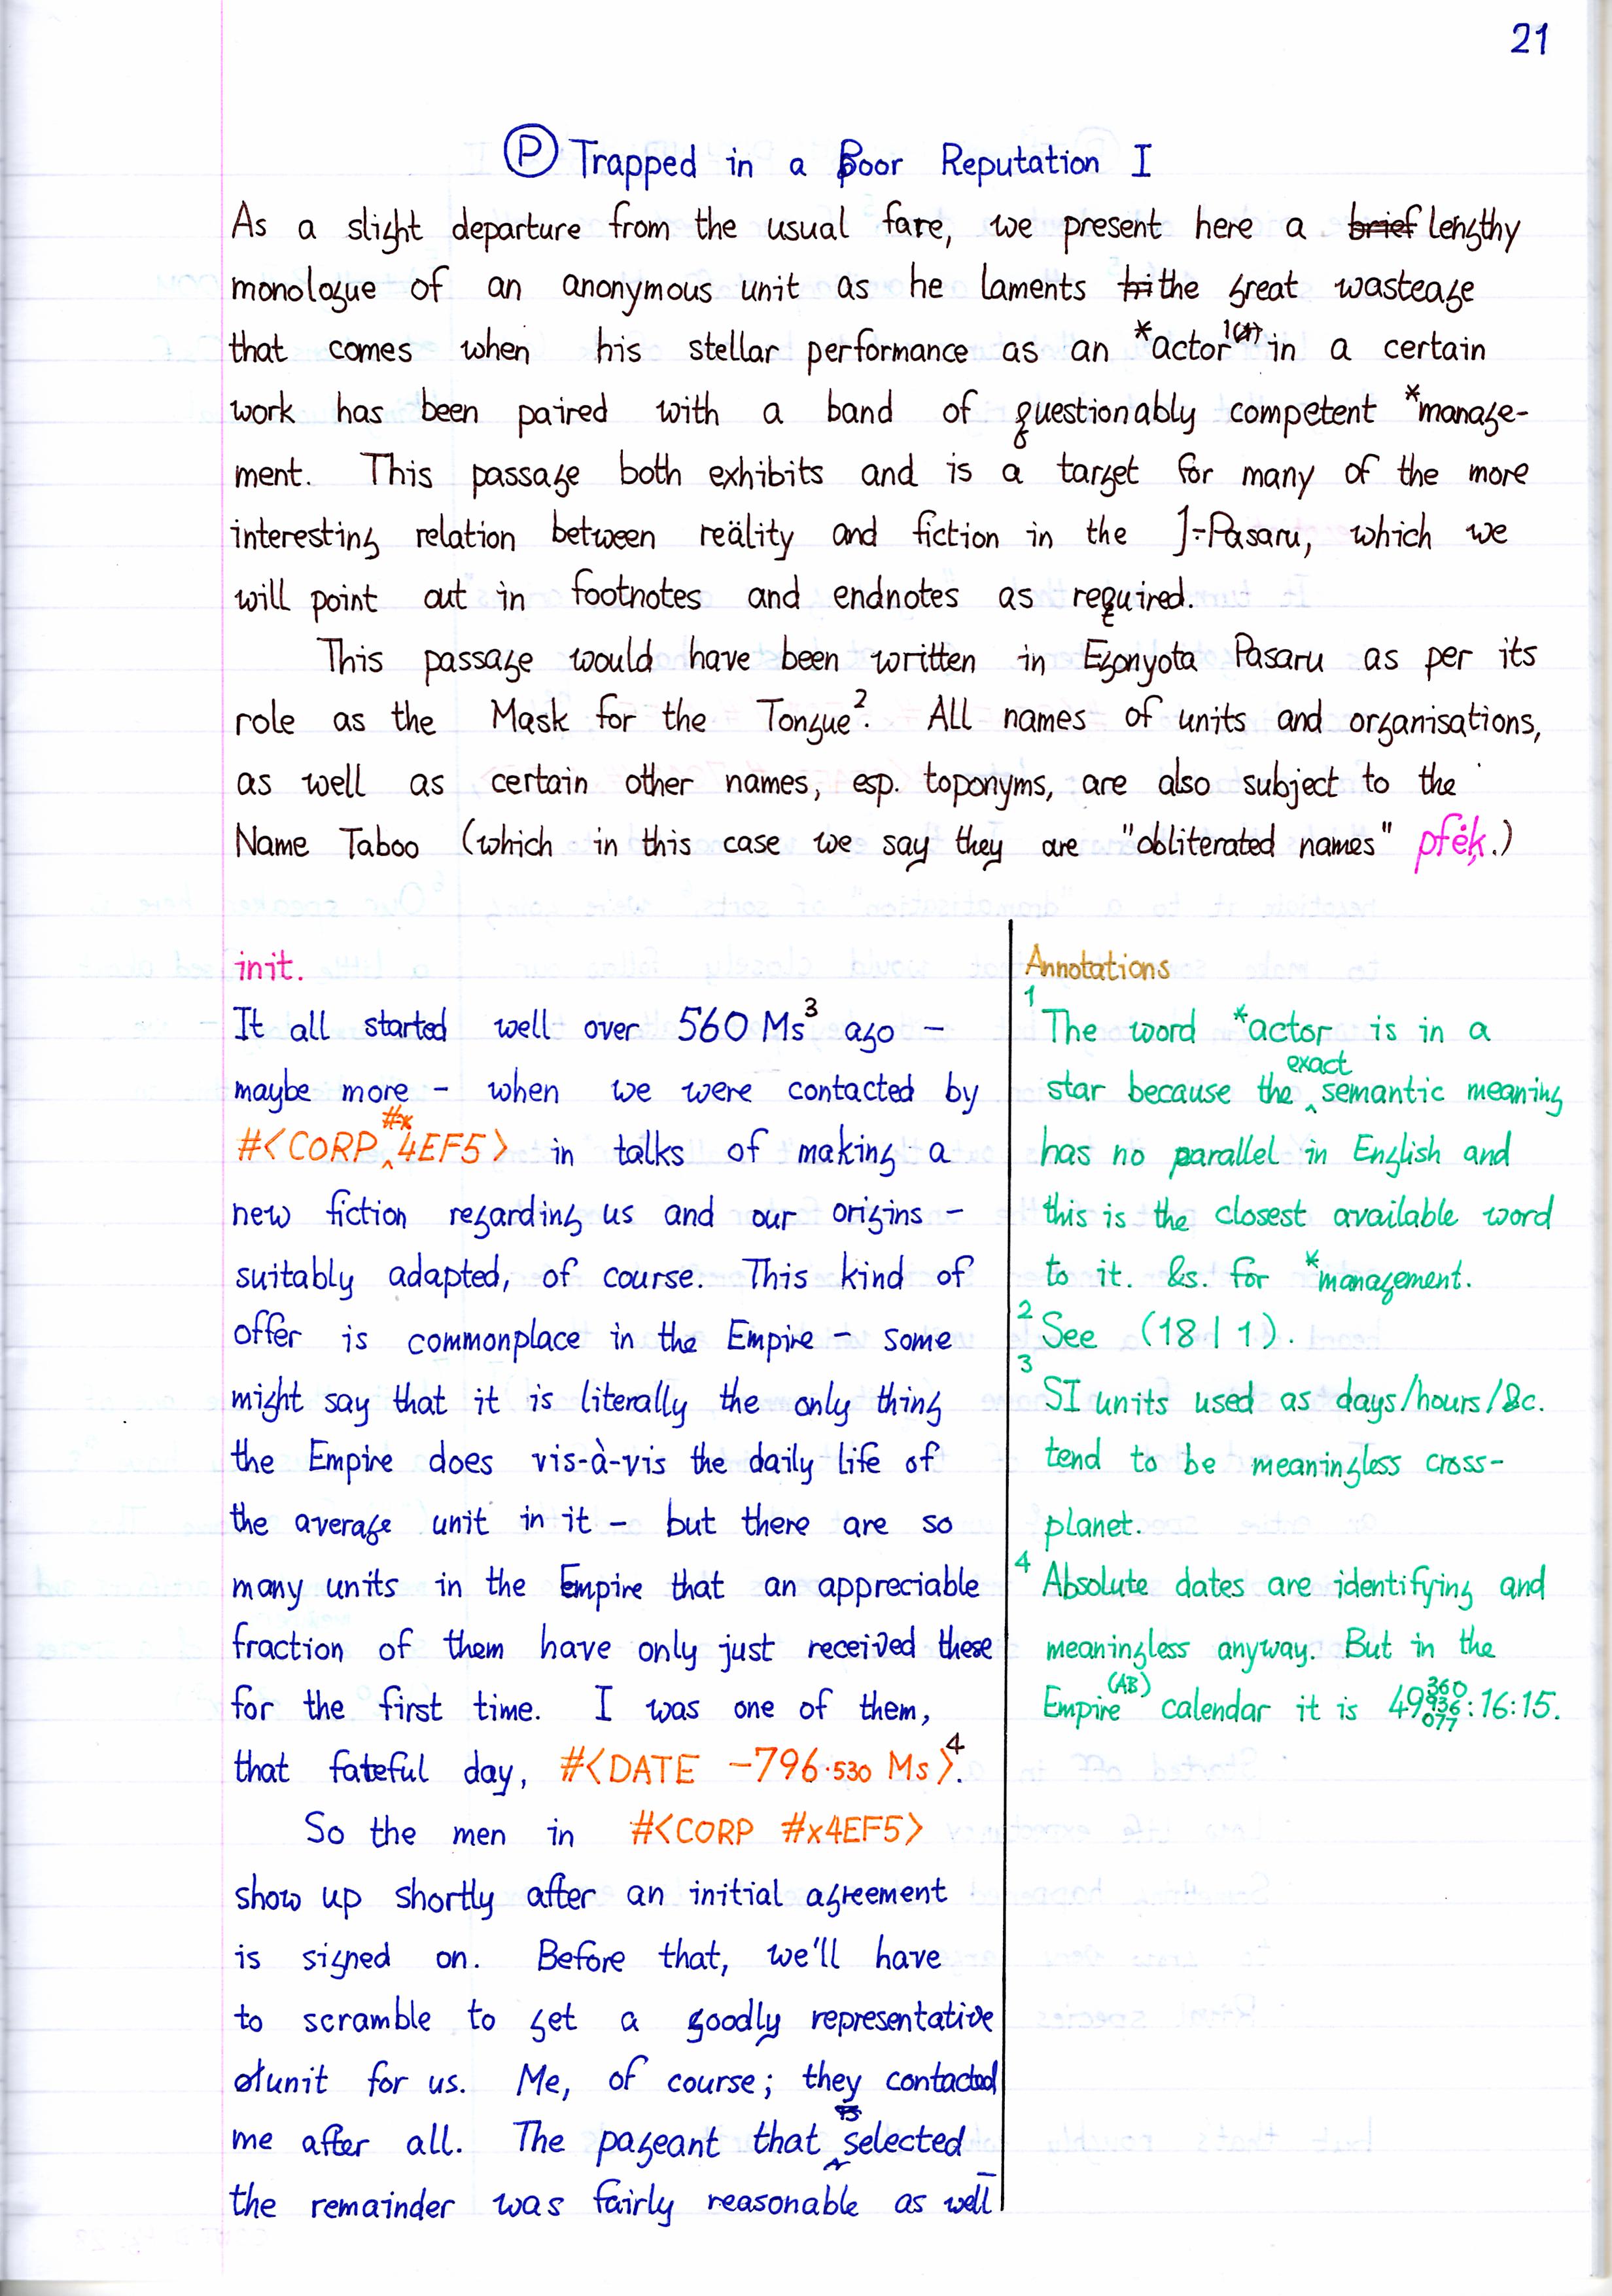 21
Ⓟ Trapped in a Poor Reputation I
As a slight departure from the usual fare, we present here a brief lengthy
monologue of an anonymous unit as he laments the great wasteage
that comes when his stellar performance as an *actor¹ in a certain
work has been paired with a band of questionably competent *manage-
ment. This passage both exhibits and is a target for many of the more
interesting relation between reälity and fiction in the J-Pasaru, which we
will point out in footnotes and endnotes as required.
This passage would have been written in Egonyota Pasaru as per its
role as the Mask for the Tongue². All names of units and organisations,
as well as certain other names, esp. toponyms, are also subject to the
Name Taboo (which in this case we say they are "obliterated names" .)
init.
It all started well over 560 Ms³ ago –
maybe more – when we were contacted by
#<CORP #x4EF5> in talks of making a
new fiction regarding us and our origins –
suitably adapted, of course. This kind of
offer is commonplace in the Empire – some
might say that it is literally the only thing
the Empire does vis-à-vis the daily life of
the average unit in it – but there are so
many units in the Empire that an appreciable
fraction of them have only just received these
for the first time. I was one of them,
that fateful day, #<DATE -796·530 Ms>⁴.
So the men in #<CORP #x4EF5>
show up shortly after an initial agreement
is signed on. Before that, we'll have
to scramble to get a goodly representative
unit for us. Me, of course; they contacted
me after all. The pageant that selected
the remainder was fairly reasonable as well
Annotations
1 The word *actor is in a
star because the exact semantic meaning
has no parallel in English and
this is the closest available word
to it. &s. for *management.
2 See (18 | 1).
3 SI units used as days/hours/&c.
tend to be meaningless cross-
planet.
4 Absolute dates are identifying and
meaningless anyway. But in the
Empire (AB) calendar it is 49 360 936 077:16:15.